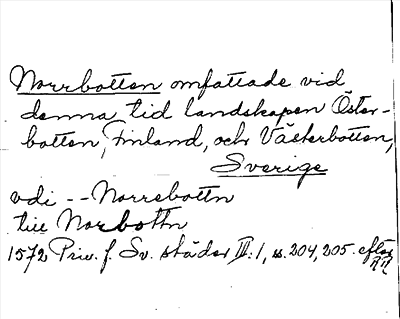 Norrbotten omfattade vid
denna tid landskapen Öster-
botten, Finland, och Västerbotten,
Sverige
vdi -- Norrebottn
till Norbottn
1572 Priv. f. Sv. städer III:1, s. 204, 205. efter